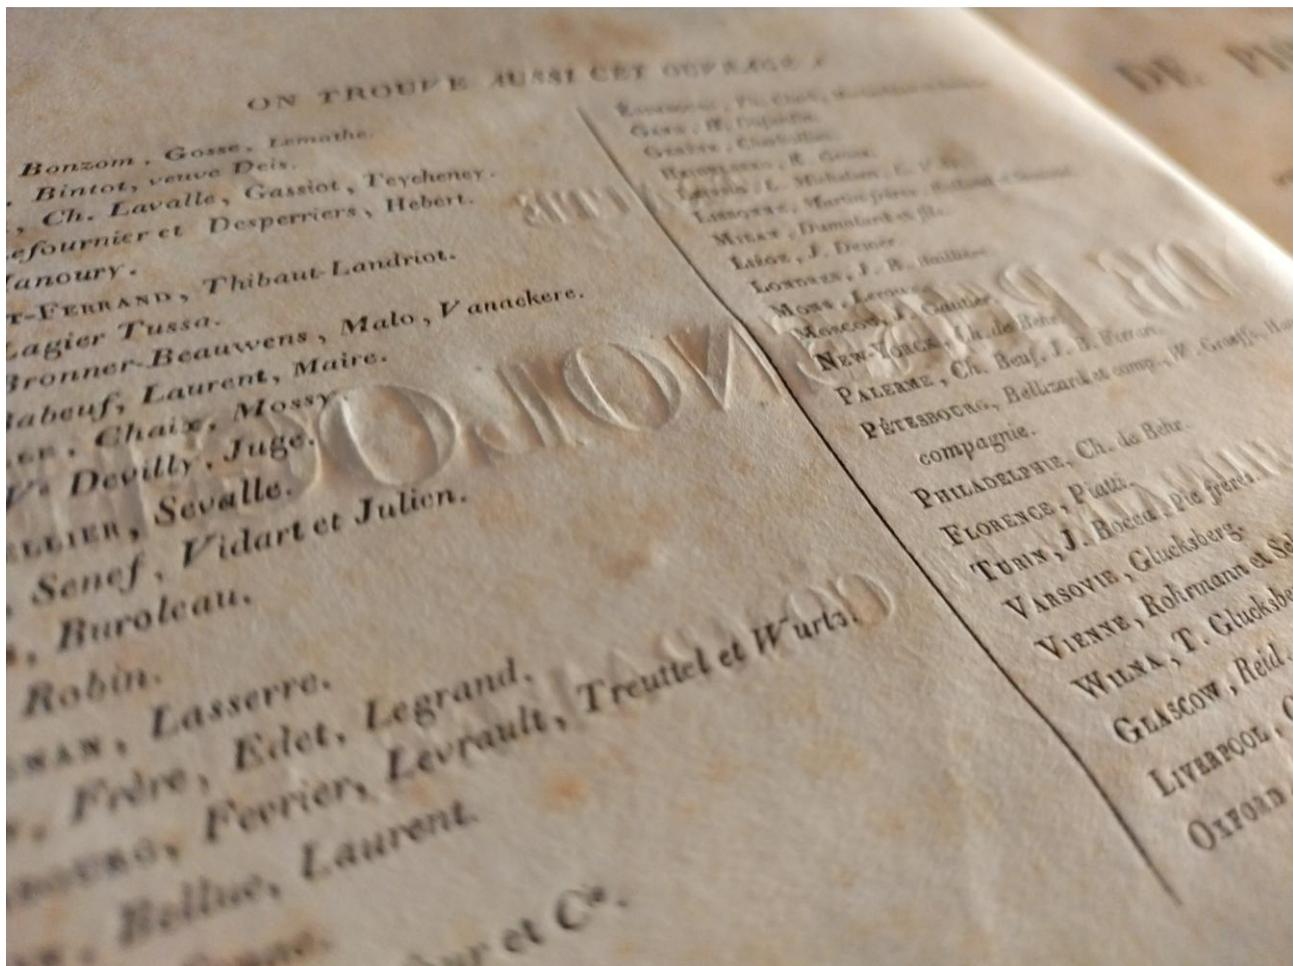 ON TROUVE AUSSI CET OUVRAGE
Bonzom, Gosse, Lemathe.
Bintot, veuve Deis.
, Ch. Lavalle, Gassiot, Teycheney.
efournier et Desperriers, Hebert.
anoury.
T-FERRAND, Thibaut-Landriot.
Lagier Tussa.
Bronner-Beauwens, Malo, Vanackere.
Babeuf, Laurent, Maire.
Chaix, Mossy.
Ve Devilly, Juge.
ELLIER, Sevalle.
, Senef, Vidart et Julien.
, Buroleau.
Robin.
Lasserre.
, Frère, Edet, Legrand.
BOURG, Fevrier, Levrault, Treuttel et Wurts.
, Bellue, Laurent.
et Ce.
GAND, H. Dujardin.
GENÈVE, Cherbuliez.
LEIPZIG, L. Michelsen,
LISBONNE, Martin frères, Rolland et Semiond.
MILAN, Dumolard et fils.
LIÈGE, J. Desoer.
LONDRES, J. B. Baillière.
MONS, Leroux.
MOSCOU, Gautier.
NEW-YORCK, Ch. de Behr.
PALERME, Ch. Beuf, J. B. Ferrari.
PÉTESBOURG, Bellizard et comp., W. Graeffe,
compagnie.
PHILADELPHIE, Ch. de Behr.
FLORENCE, Piatti.
TURIN, J. Bocca, Pic frères.
VARSOVIE, Glucksberg.
VIENNE, Rohrmann et
WILNA, T. Glucksbe
GLASCOW, Reid.
LIVERPOOL,
OXFORD
DE